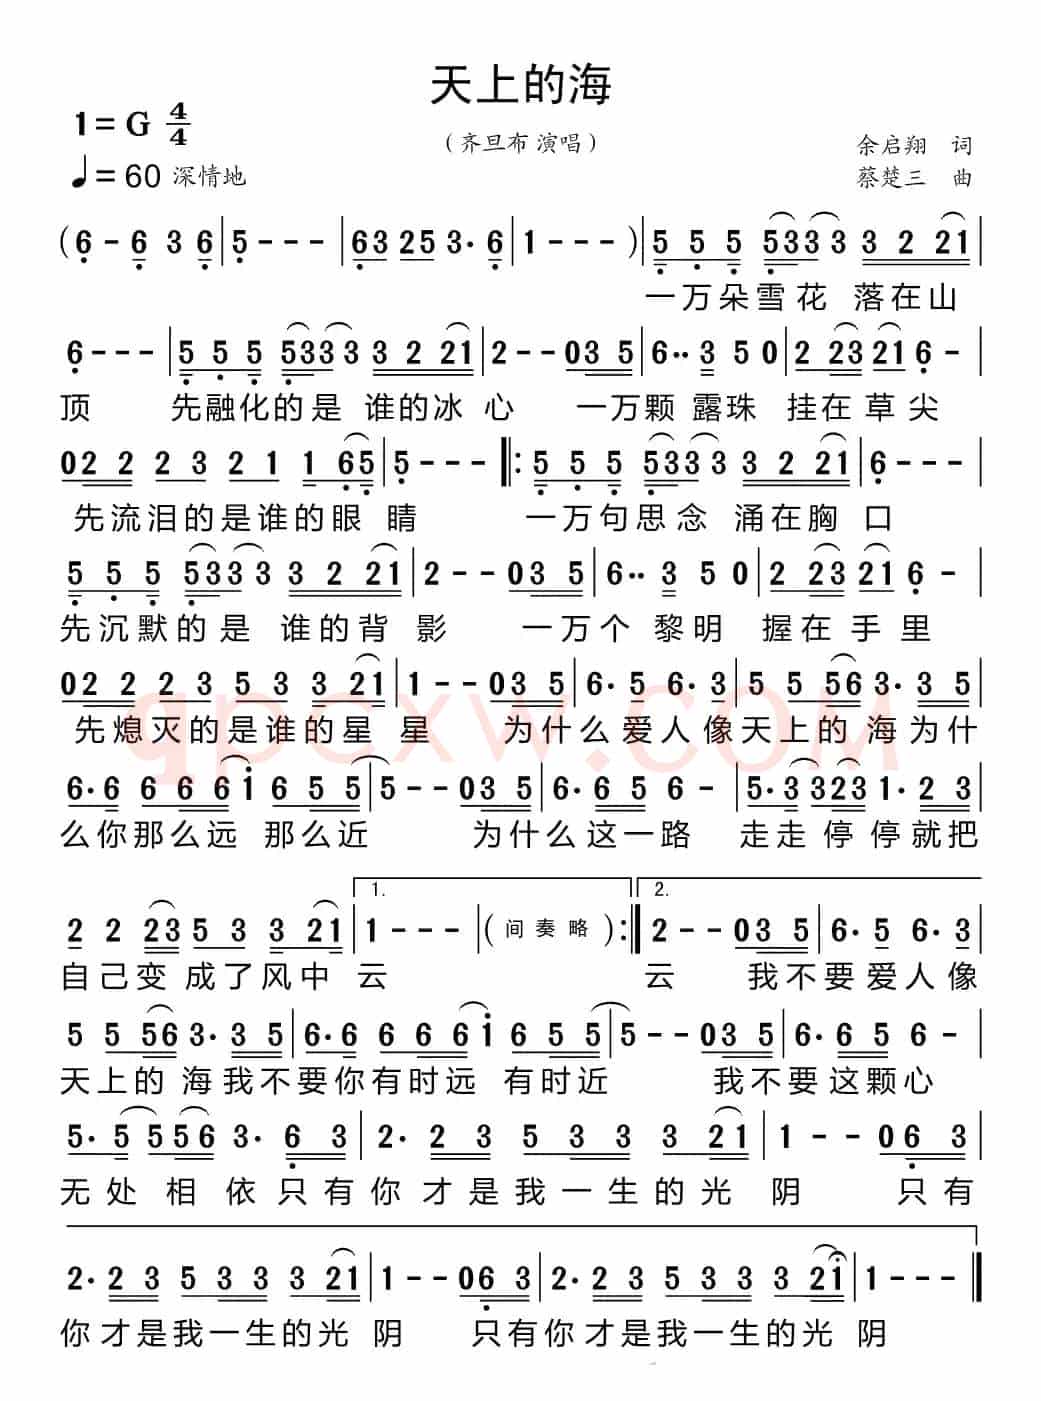 天上的海
1=G 4/4
（齐旦布 演唱）
余启翔 词
♩=60 深情地
蔡楚三 曲
(6 - 6 3 6 | 5 - - - | 6 3 2 5 3 · 6 | 1 - - - ) | 5 5 5 5 3 3 3 3 2 2 1 |
一万朵雪花 落在山
6 - - - | 5 5 5 5 3 3 3 3 2 2 1 | 2 - - 0 3 5 | 6 ·· 3 5 0 | 2 2 3 2 1 6 - |
顶 先融化的是 谁的冰 心 一万颗 露珠 挂在 草 尖
0 2 2 2 3 2 1 1 6 5 | 5 - - - |: 5 5 5 5 3 3 3 3 2 2 1 | 6 - - - |
先流泪的是谁的眼 睛 一万句思念 涌在胸 口
5 5 5 5 3 3 3 3 2 2 1 | 2 - - 0 3 5 | 6 ·· 3 5 0 | 2 2 3 2 1 6 - |
先沉默的是 谁的背 影 一万个 黎明 握在 手 里
0 2 2 2 3 5 3 3 2 1 | 1 - - 0 3 5 | 6 · 5 6 · 3 | 5 5 5 6 3 · 3 5 |
先熄灭的是谁的星 星 为什么爱人像天上的 海为什
6 · 6 6 6 6 1 6 5 5 | 5 - - 0 3 5 | 6 · 6 5 6 - | 5 · 3 3 2 3 1 · 2 3 |
么你那么远 那么近 为什么这一路 走走 停 停就把
2 2 2 3 5 3 3 2 1 | 1. 1 - - - | ( 间奏略 ) :| 2. 2 - - 0 3 5 | 6 · 5 6 · 3 |
自己变 成了风中 云 云 我不要爱人像
5 5 5 6 3 · 3 5 | 6 · 6 6 6 6 1 6 5 5 | 5 - - 0 3 5 | 6 · 6 5 6 - |
天上的 海我不要你有时远 有时近 我不要这颗心
5 · 5 5 5 6 3 · 6 3 | 2 · 2 3 5 3 3 3 2 1 | 1 - - 0 6 3 |
无处 相 依只有你 才是我一生的光 阴 只有
2 · 2 3 5 3 3 3 2 1 | 1 - - 0 6 3 | 2 · 2 3 5 3 3 3 2 1 | 1 - - - ‖
你才是我一生的光 阴 只有你才是我一生的光 阴
qpcxw.COM